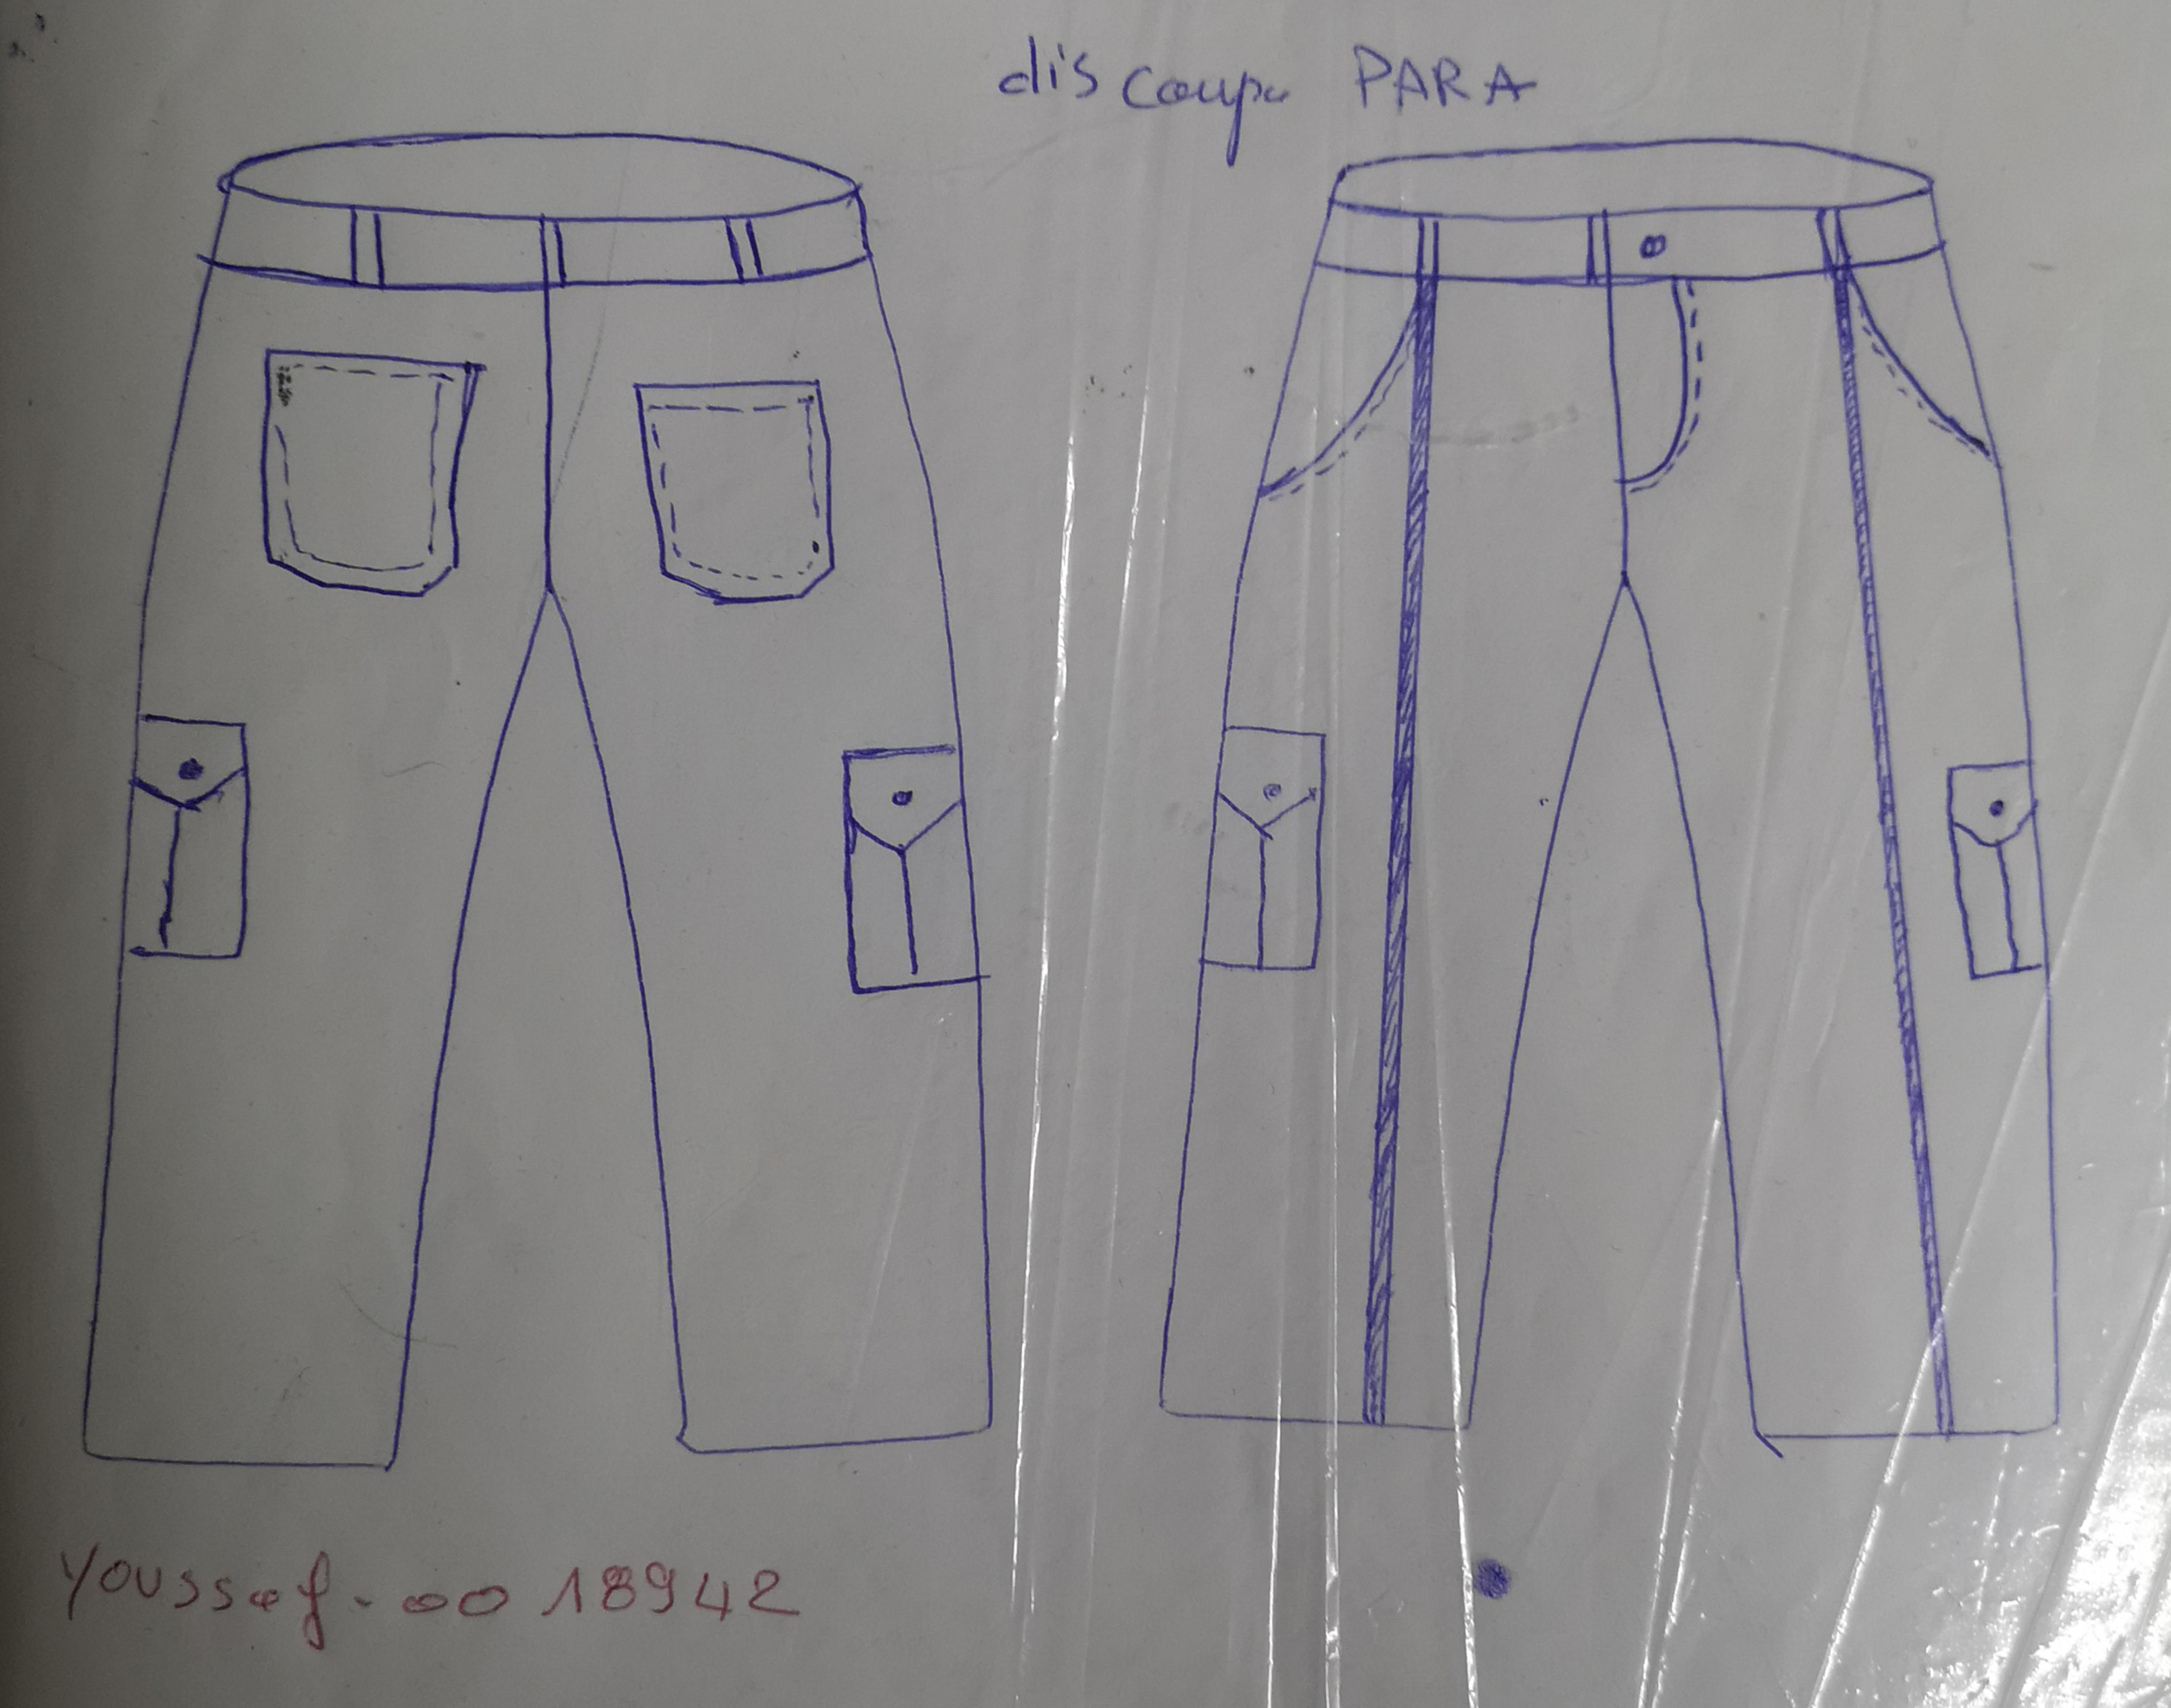 dis coupe PARA
Youssef - 00 18942